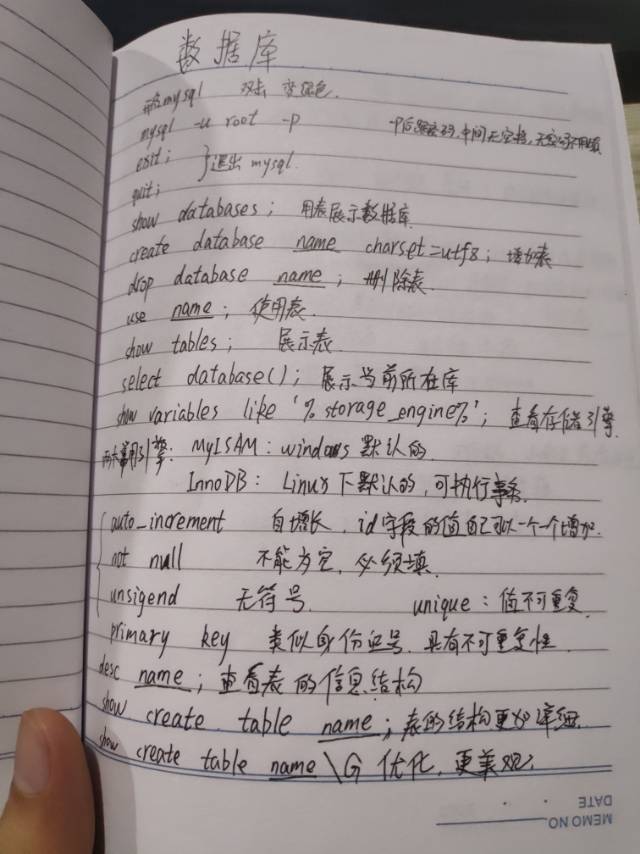 数据库
mysql 双击 变绿色.
mysql -u root -p -p后跟密码,中间无空格,无密码不用填
exit;
}退出mysql.
quit;
show databases; 用表展示数据库
create database name charset=utf8; 增加表
drop database name; 删除表.
use name; 使用表.
show tables; 展示表
select database(); 展示当前所在库
show variables like '%storage_engine%'; 查看存储引擎.
两大常用引擎: MyISAM: windows 默认的.
InnoDB: Linux下默认的,可执行事务.
auto_increment 自增长, id字段的值自己可以一个一个增加.
not null 不能为空, 必须填.
unsigend 无符号. unique: 值不可重复
primary key 类似身份证号, 具有不可重复性.
desc name; 查看表的信息结构
show create table name; 表的结构更加详细.
show create table name \G 优化, 更美观.
MEMO NO.
DATE